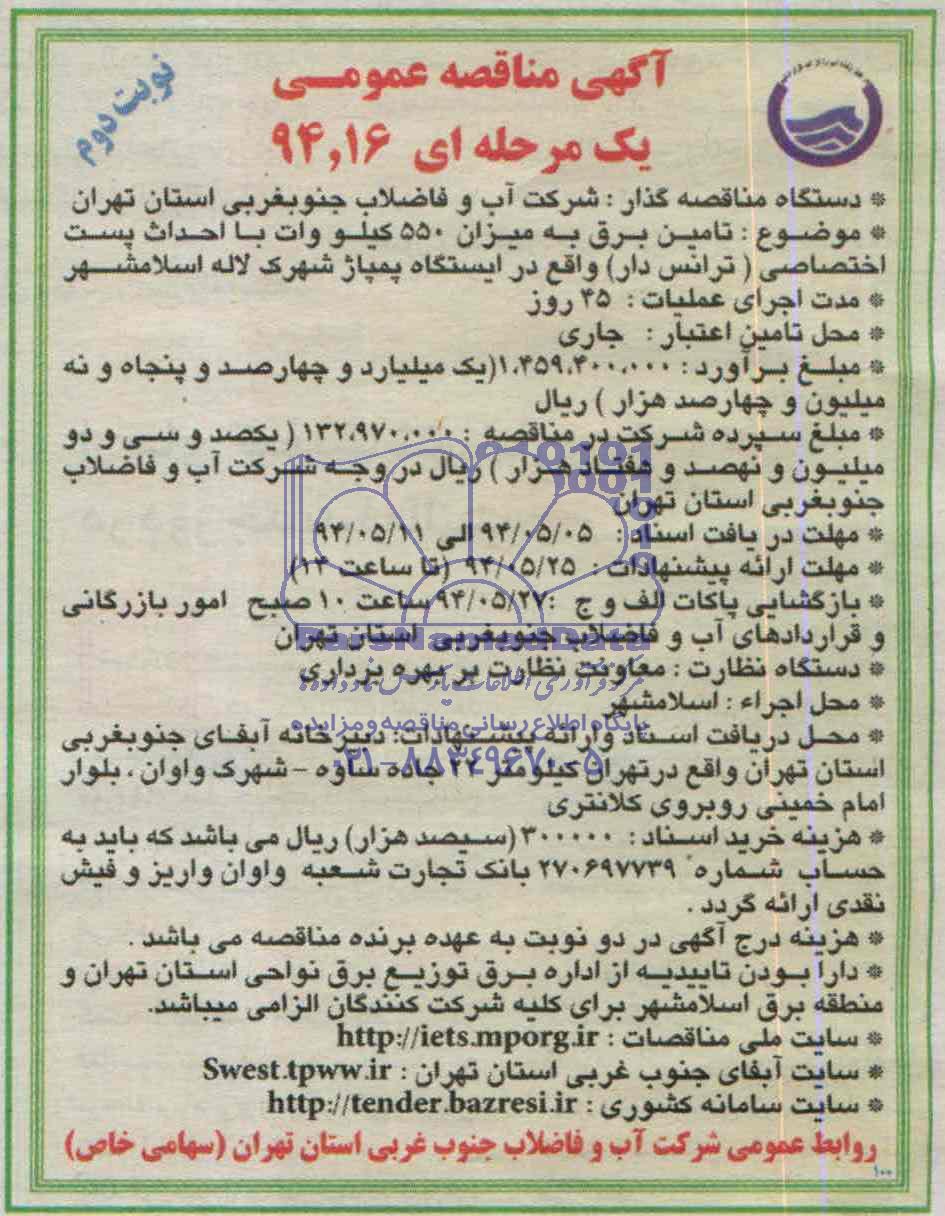 آگهی مناقصه عمومی
یک مرحله ای ۹۴,۱۶
نوبت دوم
* دستگاه مناقصه گذار : شرکت آب و فاضلاب جنوبغربی استان تهران
* موضوع : تامین برق به میزان ۵۵۰ کیلو وات با احداث پست
اختصاصی ( ترانس دار) واقع در ایستگاه پمپاژ شهرک لاله اسلامشهر
* مدت اجرای عملیات : ۴۵ روز
* محل تامین اعتبار : جاری
* مبلغ برآورد : ۱،۴۵۹،۴۰۰،۰۰۰(یک میلیارد و چهارصد و پنجاه و نه
میلیون و چهارصد هزار ) ریال
* مبلغ سپرده شرکت در مناقصه : ۱۳۲،۹۷۰،۰۰۰ ( یکصد و سی و دو
میلیون و نهصد و هفتاد هزار ) ریال در وجه شرکت آب و فاضلاب
جنوبغربی استان تهران
* مهلت دریافت اسناد : ۹۴/۰۵/۰۵ الی ۹۴/۰۵/۱۱
* مهلت ارائه پیشنهادات : ۹۴/۰۵/۲۵ (تا ساعت ۱۴)
* بازگشایی پاکات الف و ج :۹۴/۰۵/۲۷ ساعت ۱۰ صبح امور بازرگانی
و قراردادهای آب و فاضلاب جنوبغربی استان تهران
ParsNamadData
* دستگاه نظارت : معاونت نظارت بر بهره برداری
مرکز فرآوری اطلاعات پارس نماد داده
* محل اجراء : اسلامشهر
پایگاه اطلاع رسانی مناقصه و مزایده
* محل دریافت اسناد وارائه پیشنهادات: دبیرخانه آبفای جنوبغربی
۰۲۱-۸۸۳۴۹۶۷۰-۵
استان تهران واقع درتهران کیلومتر ۲۲ جاده ساوه - شهرک واوان ، بلوار
امام خمینی روبروی کلانتری
* هزینه خرید اسناد : ۳۰۰۰۰۰ (سیصد هزار) ریال می باشد که باید به
حساب شماره ۲۷۰۶۹۷۷۳۹ بانک تجارت شعبه واوان واریز و فیش
نقدی ارائه گردد .
* هزینه درج آگهی در دو نوبت به عهده برنده مناقصه می باشد .
* دارا بودن تاییدیه از اداره برق توزیع برق نواحی استان تهران و
منطقه برق اسلامشهر برای کلیه شرکت کنندگان الزامی میباشد.
* سایت ملی مناقصات : http://iets.mporg.ir
* سایت آبفای جنوب غربی استان تهران : Swest.tpww.ir
* سایت سامانه کشوری : http://tender.bazresi.ir
روابط عمومی شرکت آب و فاضلاب جنوب غربی استان تهران (سهامی خاص)
۱۰۰